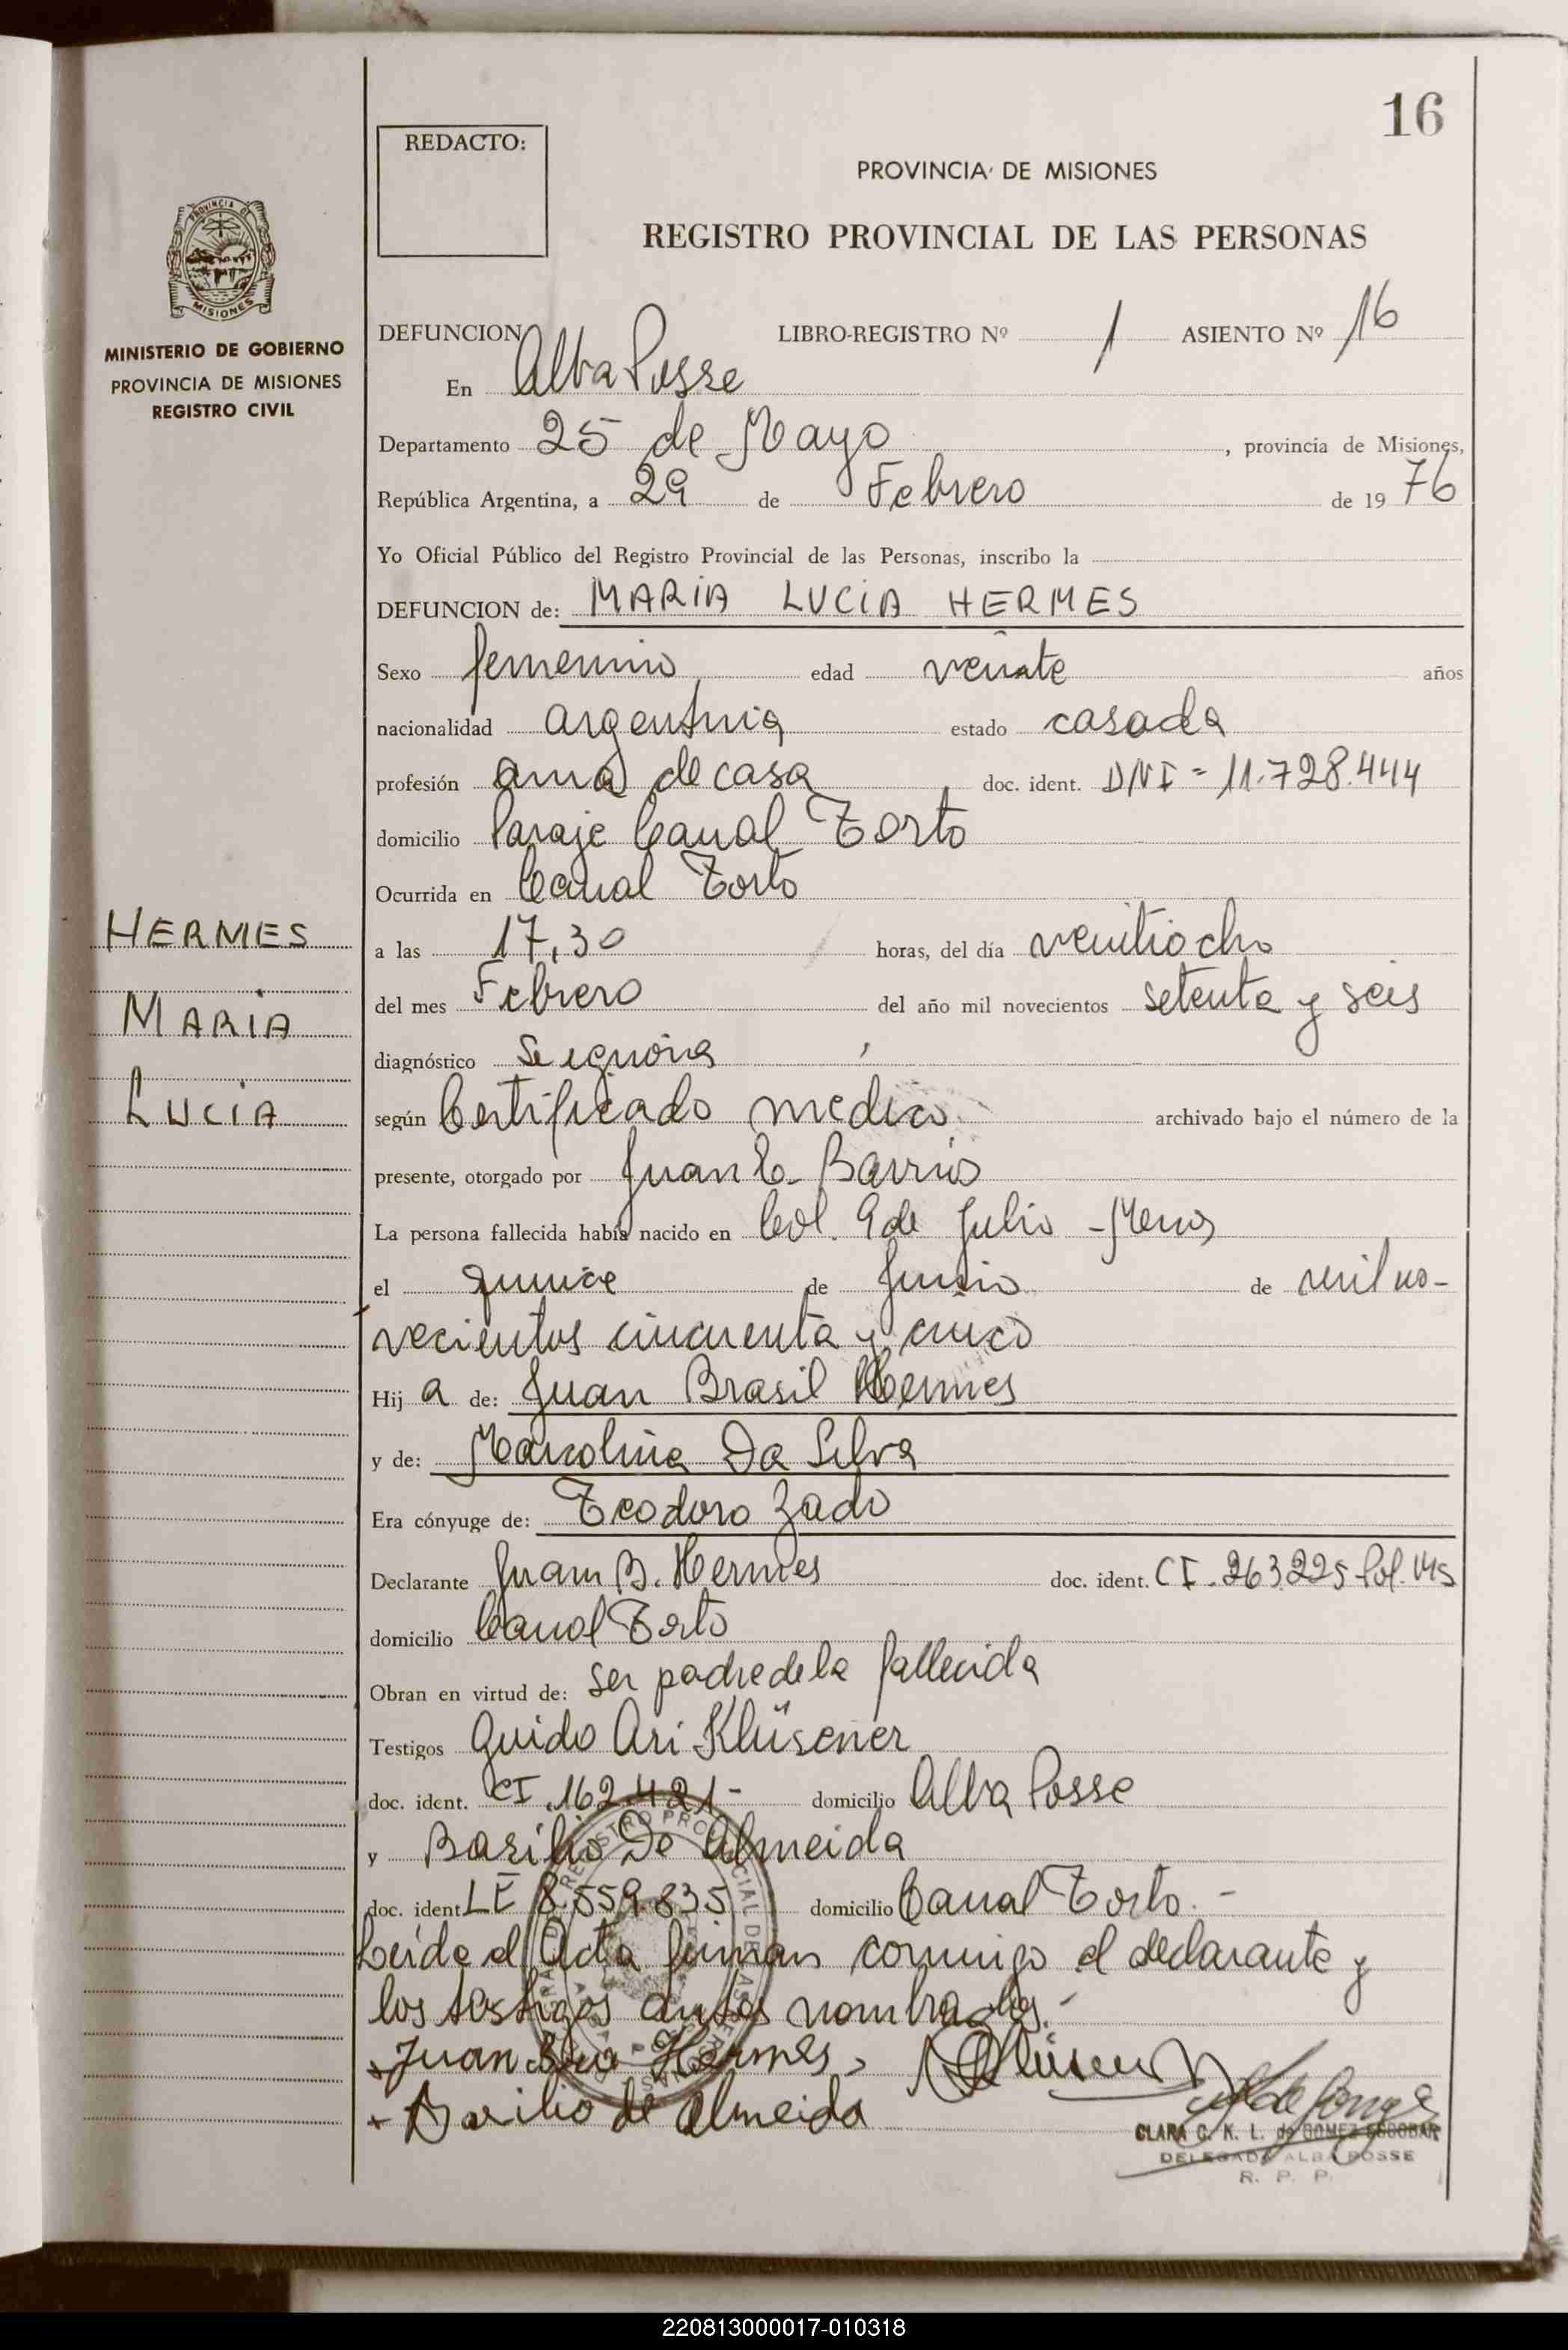 16
REDACTO:
PROVINCIA DE MISIONES
REGISTRO PROVINCIAL DE LAS PERSONAS
PROVINCIA DE
MISIONES
MINISTERIO DE GOBIERNO
PROVINCIA DE MISIONES
REGISTRO CIVIL
DEFUNCION LIBRO-REGISTRO Nº 1 ASIENTO Nº 16
En Alba Posse
Departamento 25 de Mayo, provincia de Misiones,
República Argentina, a 29 de Febrero de 1976
Yo Oficial Público del Registro Provincial de las Personas, inscribo la
DEFUNCION de: MARIA LUCIA HERMES
Sexo femenino edad veinte años
nacionalidad argentina estado casada
profesión ama de casa doc. ident. DNI = 11.728.444
domicilio Paraje Canal Torto
Ocurrida en Canal Torto
HERMES
a las 17,30 horas, del día veintiocho
MARIA
del mes Febrero del año mil novecientos setenta y seis
diagnóstico Se ignora
LUCIA
según Certificado medico archivado bajo el número de la
presente, otorgado por Juan C. Barrios
La persona fallecida había nacido en Col. 9 de Julio -
el quince de Junio de mil no-
vecientos cincuenta y cinco
Hija de: Juan Brasil Hermes
y de: Marcolina Da Silva
Era cónyuge de: Teodoro Zado
Declarante Juan B. Hermes doc. ident. CI. 263.225 Pol. Ms
domicilio Canal Torto
Obran en virtud de: ser padre de la fallecida
Testigos Guido Ari Klüsener
doc. ident. CI. 162.421- domicilio Alba Posse
y Basilio De Almeida
doc. ident LE 8.559.835 domicilio Canal Torto.-
Leida el Acta firman conmigo el declarante y
los testigos antes nombrados.-
Juan Hermes
Basilio de Almeida
CLARA C. K. L. de GOMEZ ESCOBAR
DELEGADA ALBA POSSE
R. P. P.
220813000017-010318